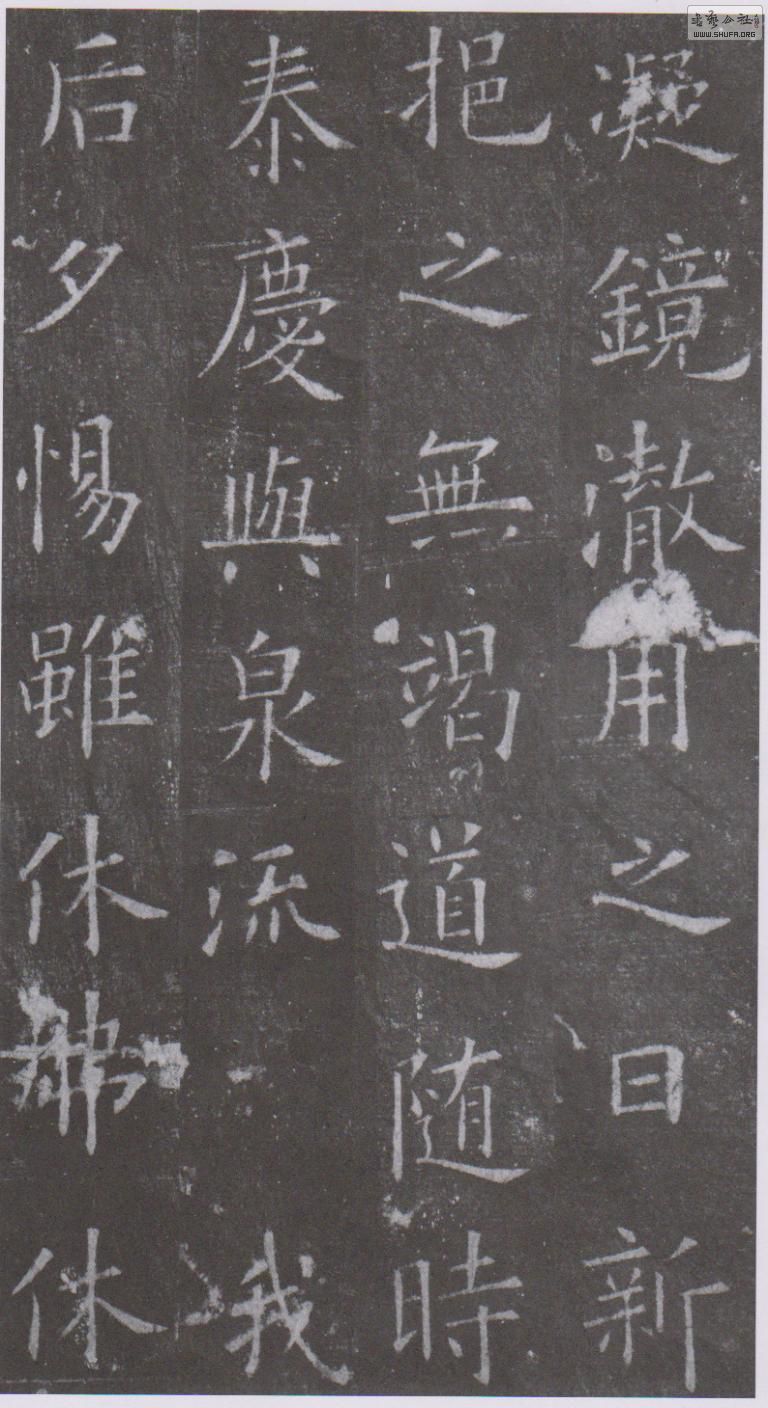 凝鏡澈用之日新
挹之無竭道随時
泰慶與泉流我
后夕惕雖休弗休
书艺公社
www.SHUFA.ORG